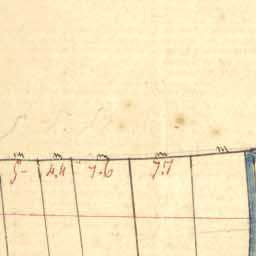 m m m m m
5- 4.4 7.6 7.7